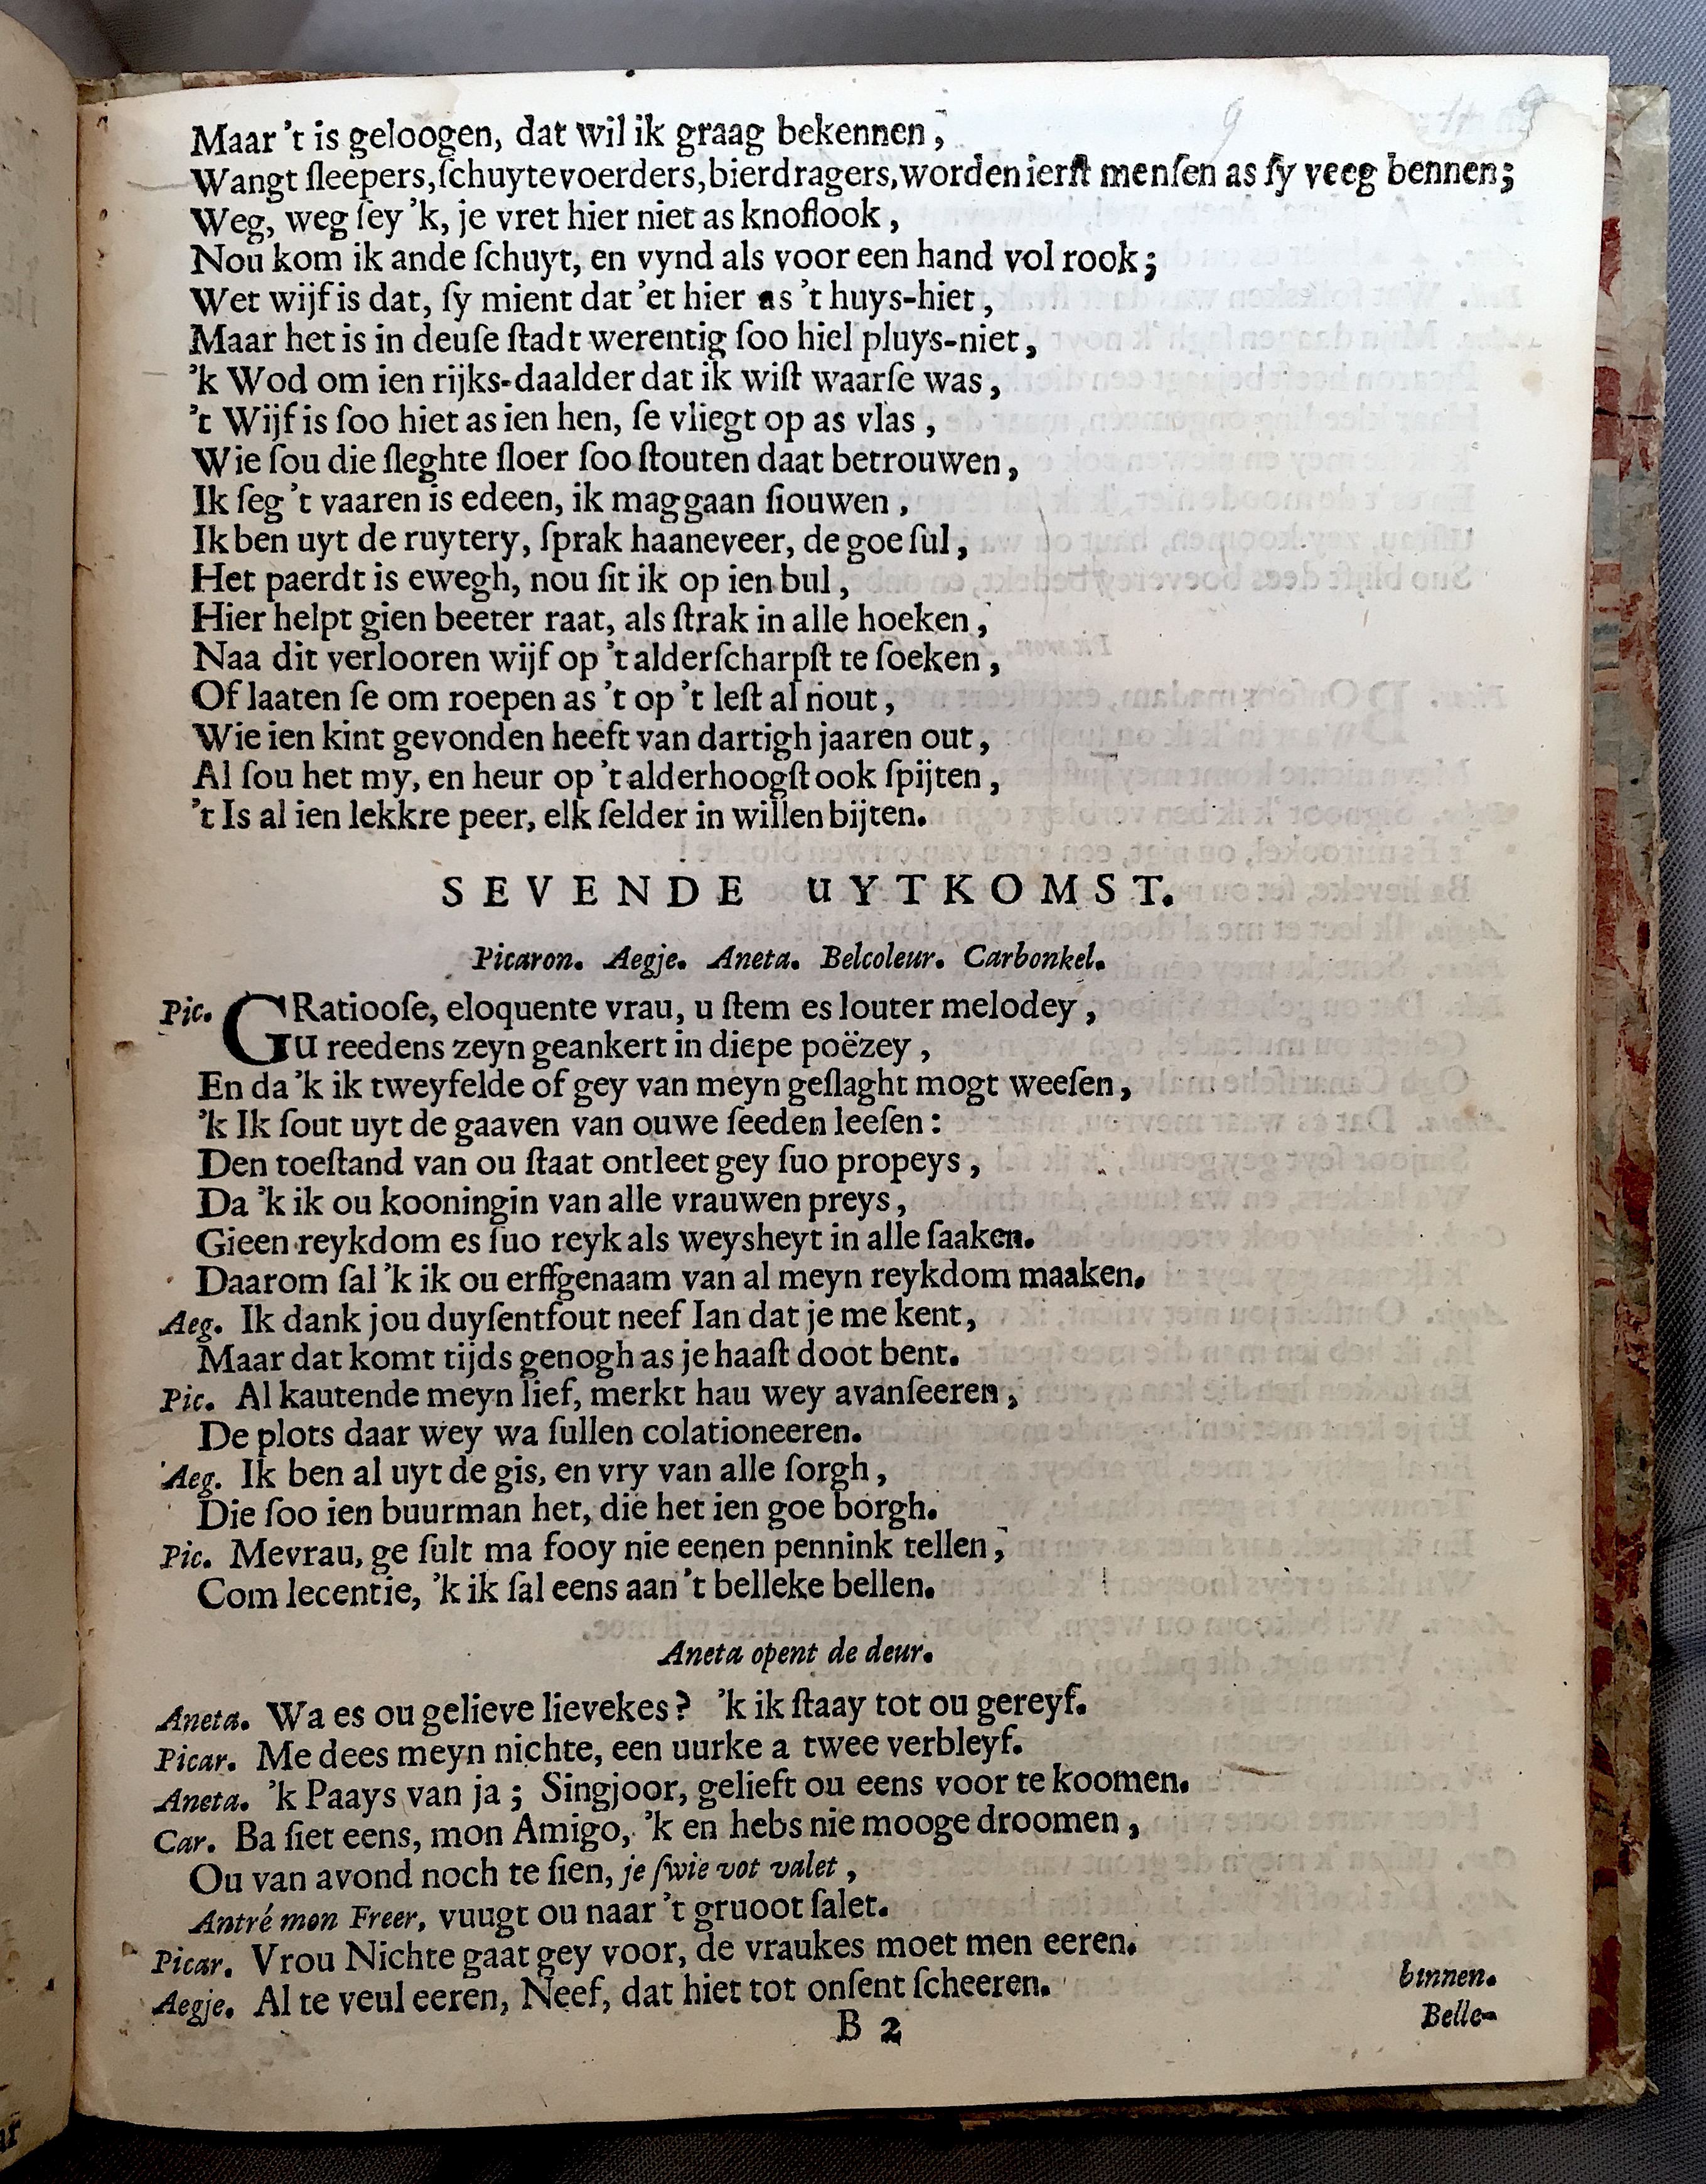 Maar 't is geloogen, dat wil ik graag bekennen,
Wangt sleepers, schuytevoerders, bierdragers, worden ierst mensen as sy veeg bennen;
Weg, weg sey 'k, je vret hier niet as knoflook,
Nou kom ik ande schuyt, en vynd als voor een hand vol rook;
Wet wijf is dat, sy mient dat 'et hier as 't huys-hiet,
Maar het is in deuse stadt werentig soo hiel pluys-niet,
'k Wod om ien rijks-daalder dat ik wist waarse was,
't Wijf is soo hiet as ien hen, se vliegt op as vlas,
Wie sou die sleghte sloer soo stouten daat betrouwen,
Ik seg 't vaaren is edeen, ik mag gaan siouwen,
Ik ben uyt de ruytery, sprak haaneveer, de goe sul,
Het paerdt is ewegh, nou sit ik op ien bul,
Hier helpt gien beeter raat, als strak in alle hoeken,
Naa dit verlooren wijf op 't alderscharpst te soeken,
Of laaten se om roepen as 't op 't lest al nout,
Wie ien kint gevonden heeft van dartigh jaaren out,
Al sou het my, en heur op 't alderhoogst ook spijten,
't Is al ien lekkre peer, elk selder in willen bijten.
SEVENDE UYTKOMST.
Picaron. Aegje. Aneta. Belcoleur. Carbonkel.
Pic. GRatioose, eloquente vrau, u stem es louter melodey,
U reedens zeyn geankert in diepe poëzey,
En da 'k ik tweyfelde of gey van meyn geslaght mogt weesen,
'k Ik sout uyt de gaaven van ouwe seeden leesen:
Den toestand van ou staat ontleet gey suo propeys,
Da 'k ik ou kooningin van alle vrauwen preys,
Gieen reykdom es suo reyk als weysheyt in alle saaken.
Daarom sal 'k ik ou erffgenaam van al meyn reykdom maaken.
Aeg. Ik dank jou duysentfout neef Ian dat je me kent,
Maar dat komt tijds genogh as je haast doot bent.
Pic. Al kautende meyn lief, merkt hau wey avanseeren,
De plots daar wey wa sullen colationeeren.
Aeg. Ik ben al uyt de gis, en vry van alle sorgh,
Die soo ien buurman het, die het ien goe borgh.
Pic. Mevrau, ge sult ma fooy nie eenen pennink tellen,
Com lecentie, 'k ik sal eens aan 't belleke bellen.
Aneta opent de deur.
Aneta. Wa es ou gelieve lievekes? 'k ik staay tot ou gereyf.
Picar. Me dees meyn nichte, een uurke a twee verbleyf.
Aneta. 'k Paays van ja; Singjoor, gelieft ou eens voor te koomen.
Car. Ba siet eens, mon Amigo, 'k en hebs nie mooge droomen,
Ou van avond noch te sien, je swie vot valet,
Antré mon Freer, vuugt ou naar 't gruoot salet.
Picar. Vrou Nichte gaat gey voor, de vraukes moet men eeren.
Aegje. Al te veul eeren, Neef, dat hiet tot onsent scheeren. binnen.
B 2 Belle-